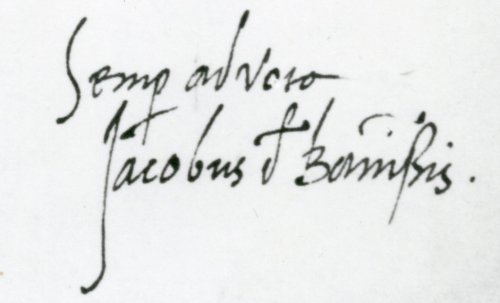 Semp ad vota
Jacobus d Bannissis.